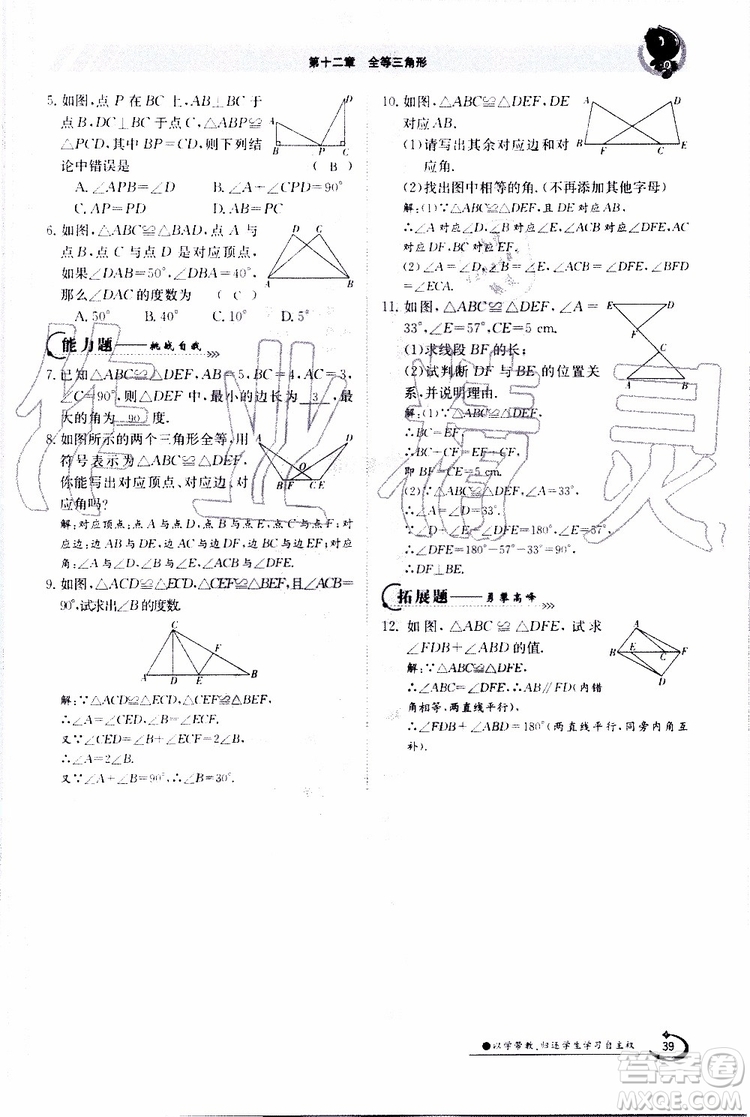 第十二章 全等三角形
5. 如图,点 P 在 BC 上,AB⊥BC 于
点 B,DC⊥BC 于点 C,△ABP≌
△PCD,其中 BP=CD,则下列结
论中错误是 ( B )
A. ∠APB=∠D B. ∠A+∠CPD=90°
C. AP=PD D. AB=PC
6. 如图,△ABC≌△BAD,点 A 与
点 B,点 C 与点 D 是对应顶点,
如果∠DAB=50°,∠DBA=40°,
那么∠DAC 的度数为 ( C )
A. 50° B. 40° C. 10° D. 5°
能力题——挑战自我
7. 已知△ABC≌△DEF,AB=5,BC=4,AC=3,
∠C=90°,则△DEF 中,最小的边长为 3 ,最
大的角为 90 度.
8. 如图所示的两个三角形全等,用
符号表示为△ABC≌△DEF,
你能写出对应顶点、对应边、对
应角吗?
解:对应顶点:点A与点D,点B与点E,点C与点F.
对应边:边AB与边DE,边BC与边EF,边AC与边DF.对应
角:∠A与∠D,∠B与∠E,∠ACB与∠DFE.
9. 如图,△ACD≌△ECD,△CEF≌△BEF,且∠ACB=
90°,试求出∠B 的度数.
解:∵△ACD≌△ECD,△CEF≌△BEF,
∴∠A=∠CED,∠B=∠ECF.
又∵∠CED=∠B+∠ECF=2∠B,
∴∠A=2∠B.
又∵∠A+∠B=90°,∴∠B=30°.
10. 如图,△ABC≌△DEF,DE
对应 AB.
(1)请写出其余对应边和对
应角.
(2)找出图中相等的角.(不再添加其他字母)
解:(1)∵△ABC≌△DEF,且DE对应AB,
∴∠A对应∠D,∠B对应∠E,∠ACB对应∠DFE,AC
对应DF,BC对应EF.
(2)∠A=∠D,∠B=∠E,∠ACB=∠DFE,∠BFD
=∠ECA.
11. 如图,△ABC≌△DEF,∠A=
33°,∠E=57°,CE=5 cm.
(1)求线段 BF 的长;
(2)试判断 DF 与 BE 的位置关
系,并说明理由.
解:(1)∵△ABC≌△DEF,
∴BC=EF,
∴BC-CF=EF-CF,
即BF=CE=5 cm.
(2)∵△ABC≌△DEF,∠A=33°,
∴∠A=∠D=33°,
∵∠D+∠E+∠DFE=180°,∠E=57°,
∴∠DFE=180°-57°-33°=90°,
∴DF⊥BE.
拓展题——勇攀高峰
12. 如图,△ABC≌△DFE,试求
∠FDB+∠ABD 的值.
解:∵△ABC≌△DFE,
∴∠ABC=∠DFE,∴AB∥FD(内错
角相等,两直线平行),
∴∠FDB+∠ABD=180°(两直线平行,同旁内角互
补).
以学带教,归还学生学习自主权
39
作业精灵
答案圈
MXQE.COM